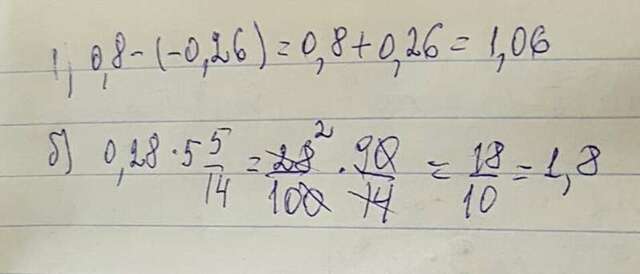 1) 0,8 - (-0,26) = 0,8 + 0,26 = 1,06
б) 0,28 · 5 5/14 = 28²/100 · 90/14 = 18/10 = 1,8